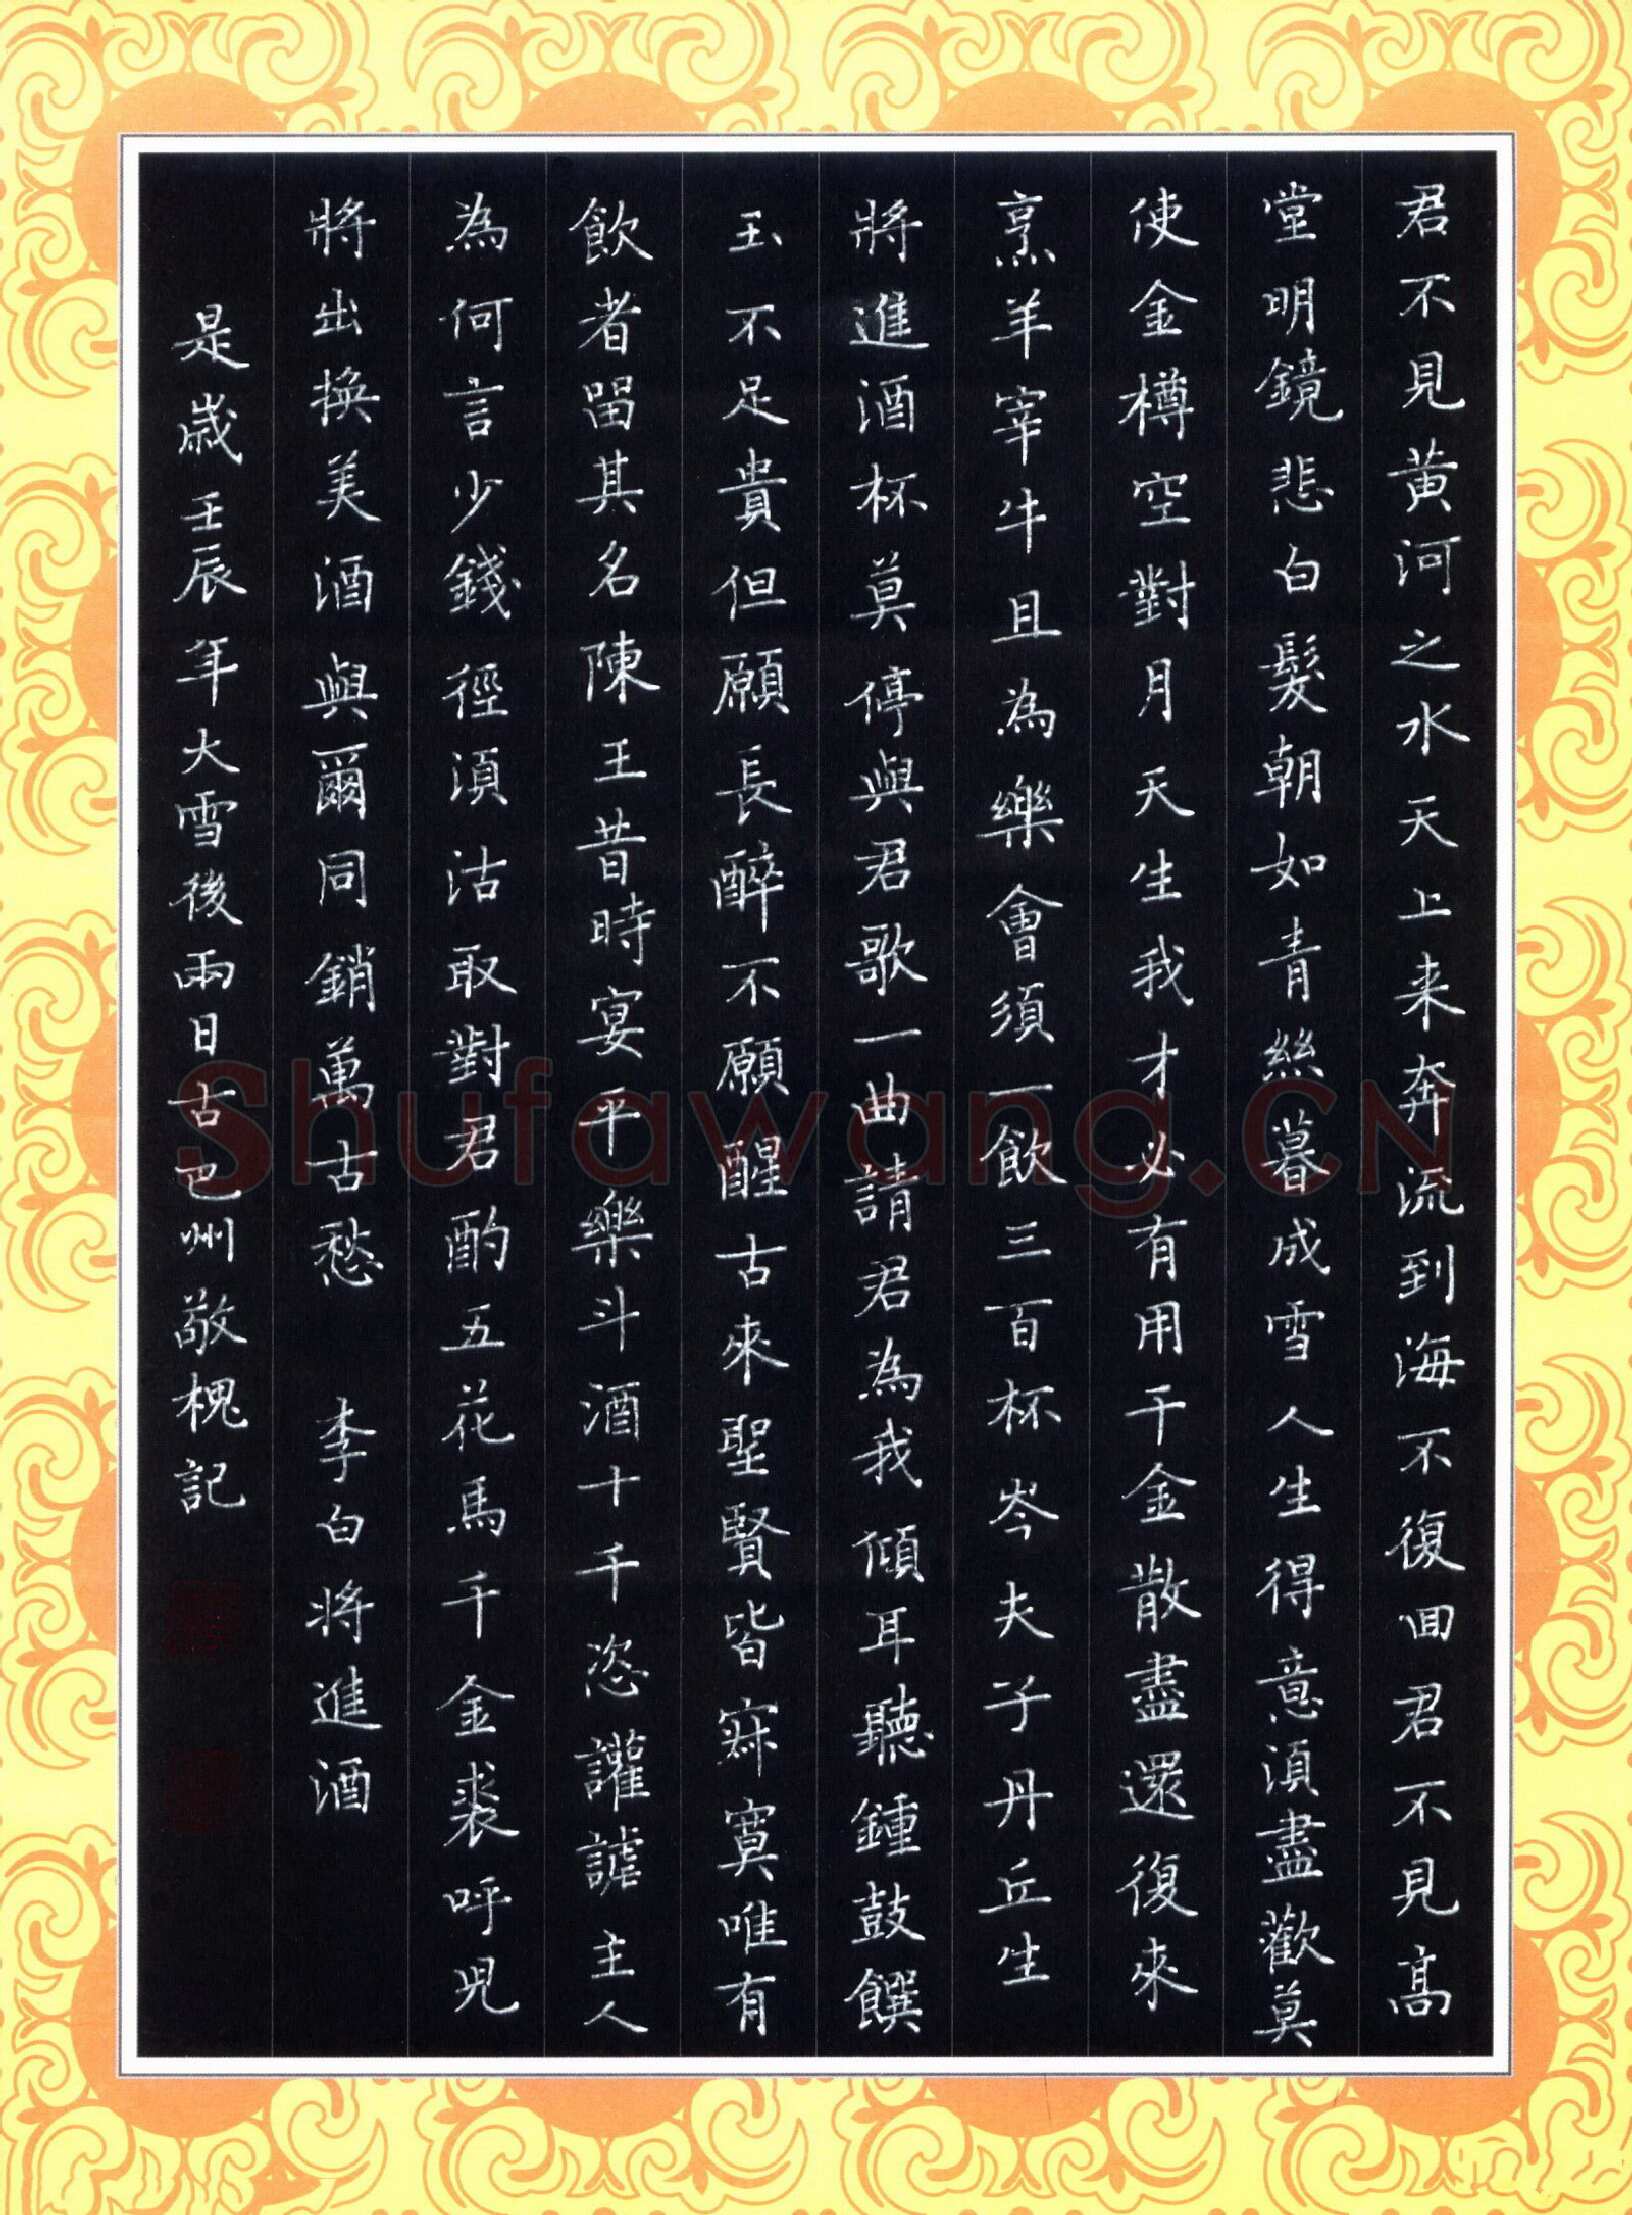 君不見黄河之水天上来奔流到海不復囬君不見髙
堂明鏡悲白髮朝如青絲暮成雪人生得意湏盡歡莫
使金樽空對月天生我才必有用千金散盡還復來
烹羊宰牛且為樂會須一飲三百杯岑夫子丹丘生
將進酒杯莫停與君歌一曲請君為我傾耳聽鍾鼓饌
玉不足貴但願長醉不願醒古來聖賢皆寂寞唯有
飲者留其名陳王昔時宴平樂斗酒十千恣讙謔主人
為何言少錢徑湏沽取對君酌五花馬千金裘呼兒
將出換美酒與爾同銷萬古愁 李白将進酒
是歲壬辰年大雪後兩日古巴州敬槐記
Shufawang.CN